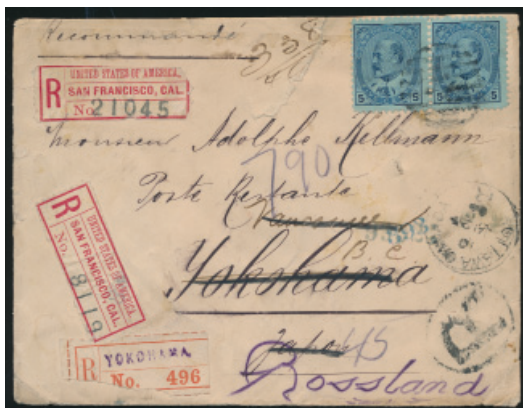 Recommandé
338
UNITED STATES OF AMERICA.
R SAN FRANCISCO, CAL.
No. 21045
5 5 5 5
Monsieur Adolphe Kellmann
790
Poste Restante
Vancouver
B.C.
Yokohama
Japon
45
Rossland
UNITED STATES OF AMERICA.
R SAN FRANCISCO, CAL.
No.
R YOKOHAMA
No. 496
OTTAWA
R